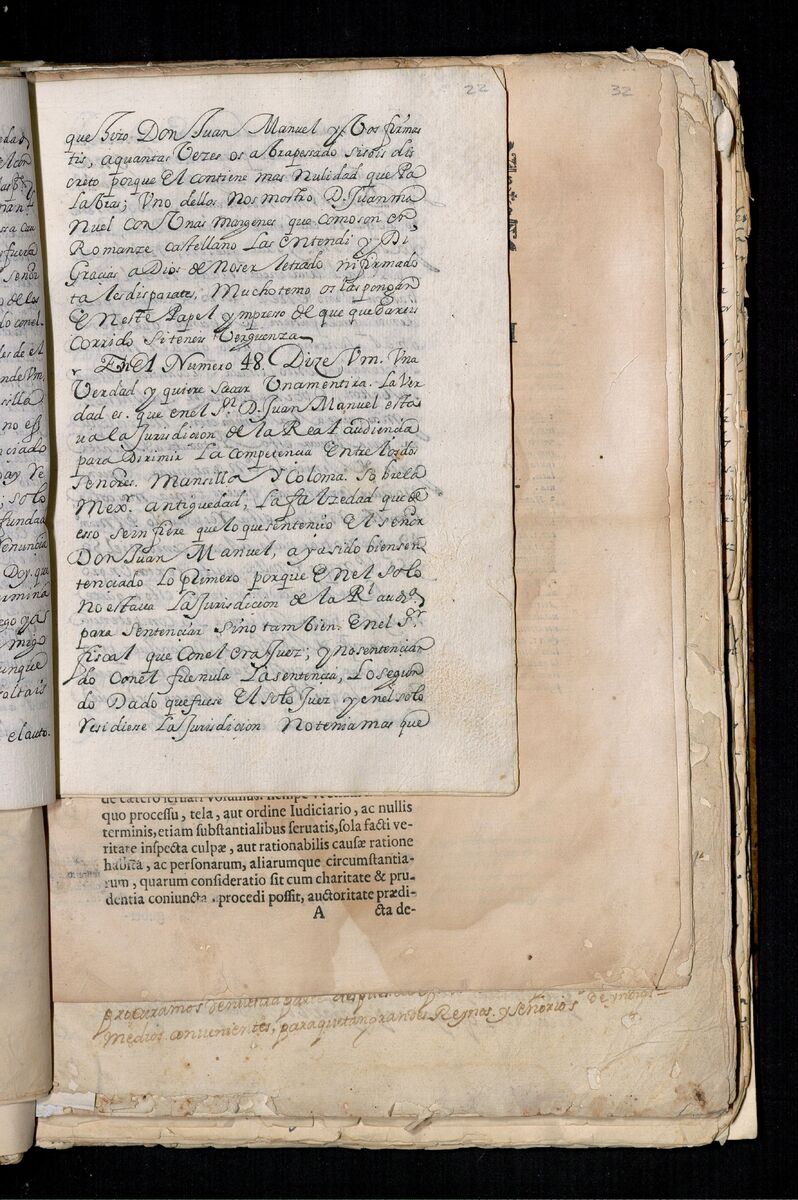 22
32
que hizo Don Juan Manuel y Vos firmas
tis, aquantas Vezes os atrapessado sisois dis
creto porque el contiene mas nulidad que Pa
labras; Uno dellos nos mostro D. Juanma
nuel con Unas margenes que comoson en
Romanze castellano Las entendi y Di
Gracias a Dios de noser letrado ni firmado
tales disparates, Muchotemo os las pongan
en este Papel ympreso de que quedareis
Corrido si teneis Verguenza
En el Numero 48. Dize Vm. Una
Verdad y quiere sacar Unamentira. La Ver
dad es. que enel Sr. D. Juan Manuel esta
va la Jurisdicion de la Real audiencia
para Dirimir La competencia Entre losdos
senores. Mansilla y Coloma. Sobre la
Mexr. antiguedad, La falzedad que de
esso se infiere que lo que sentencio El señor
Don Juan Manuel, aya sido biensen
tenciado Lo primero porque Enel solo
no estava La Jurisdicion de la Rl auda
para sentenciar sino tambien Enel Sr
fiscal que Conel era Juez; y nosentencian
do Conel fue nula La sentencia, Lo segun
do Dado que fuese El solo Juez y enel solo
residiese La Jurisdicion No tenia mas que
quo processu, tela, aut ordine Iudiciario, ac nullis
terminis, etiam substantialibus seruatis, sola facti ve-
ritate inspecta culpæ, aut rationabilis causæ ratione
habita, ac personarum, aliarumque circumstantia-
rum, quarum consideratio sit cum charitate & pru-
dentia coniuncta, procedi possit, auctoritate prædi-
A cta de-
procuramos
Medios convenientes, para que tan grandes Reynos. y señorios de yndias